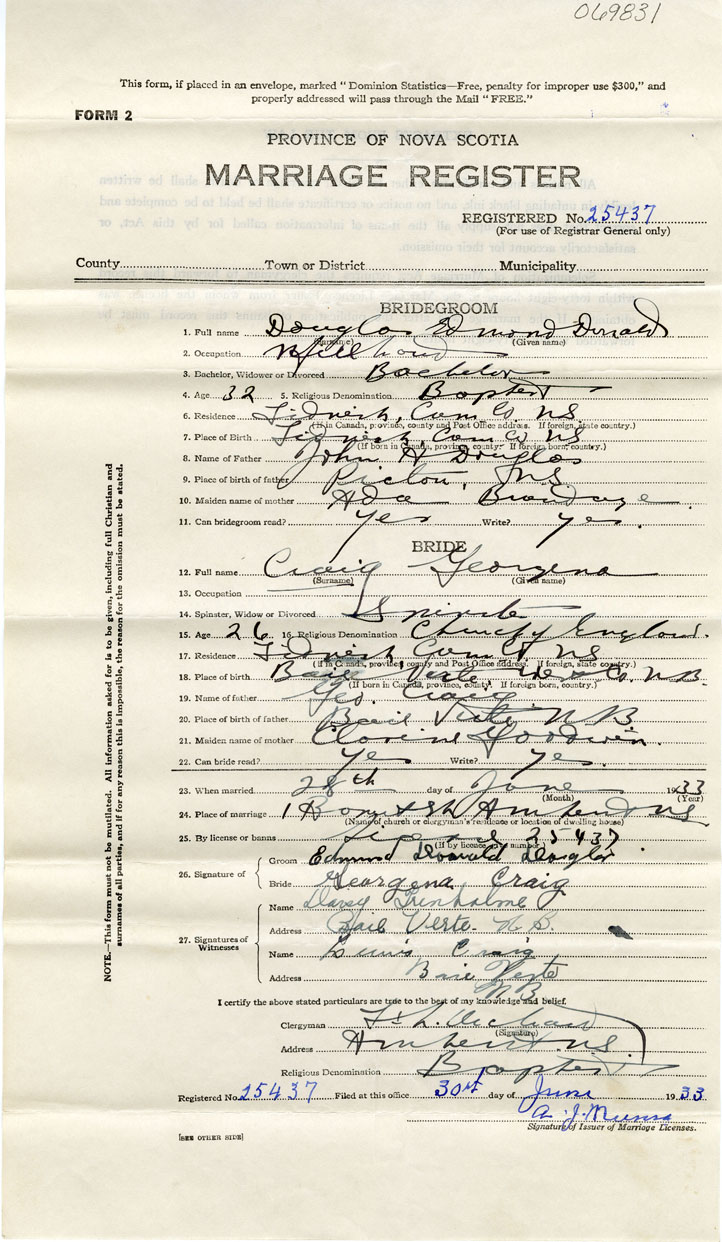 069831
This form, if placed in an envelope, marked "Dominion Statistics—Free, penalty for improper use $300," and
properly addressed will pass through the Mail "FREE."
FORM 2
PROVINCE OF NOVA SCOTIA
MARRIAGE REGISTER
REGISTERED No. 25437
(For use of Registrar General only)
County Town or District Municipality
BRIDEGROOM
1. Full name Douglas Edmond Donald
(Surname) (Given name)
2. Occupation Mill hand
3. Bachelor, Widower or Divorced Bachelor
4. Age 32 5. Religious Denomination Baptist
6. Residence Tidnish, Cum Co. NS
(If in Canada, province, county and Post Office address. If foreign, state country.)
7. Place of Birth Tidnish, Cum Co NS
(If born in Canada, province, county. If foreign born, country.)
8. Name of Father John H Douglas
9. Place of birth of father Pictou, NS
10. Maiden name of mother Ada
11. Can bridegroom read? Yes Write? Yes.
BRIDE
12. Full name Craig Georgena
(Surname) (Given name)
13. Occupation
14. Spinster, Widow or Divorced Spinster
15. Age 26 16. Religious Denomination Church of England.
17. Residence Tidnish Cum Co NS
(If in Canada, province, county and Post Office address. If foreign, state country.)
18. Place of birth Baie Verte West Co. N.B.
(If born in Canada, province, county. If foreign born, country.)
19. Name of father Geo. Craig
20. Place of birth of father Baie Verte NB
21. Maiden name of mother Goodwin.
22. Can bride read? Yes Write? Yes.
23. When married 28th day of June 1933
(Month) (Year)
24. Place of marriage Amherst NS
(Name of church or clergyman's residence or location of dwelling house)
25. By license or banns License 25437
(If by licence, state number)
26. Signature of
Groom Edmund Donald Douglas
Bride Georgena Craig
27. Signatures of Witnesses
Name Darcy Trenholme
Address Baie Verte N.B.
Name Craig
Address Baie Verte
NB
I certify the above stated particulars are true to the best of my knowledge and belief.
Clergyman
(Signature)
Address Amherst N.S.
Religious Denomination Baptist
Registered No. 25437 Filed at this office 30th day of June 1933
A. J. Munro
Signature of Issuer of Marriage Licenses.
[SEE OTHER SIDE]
NOTE.—This form must not be mutilated. All information asked for is to be given, including full Christian and
surnames of all parties, and if for any reason this is impossible, the reason for the omission must be stated.